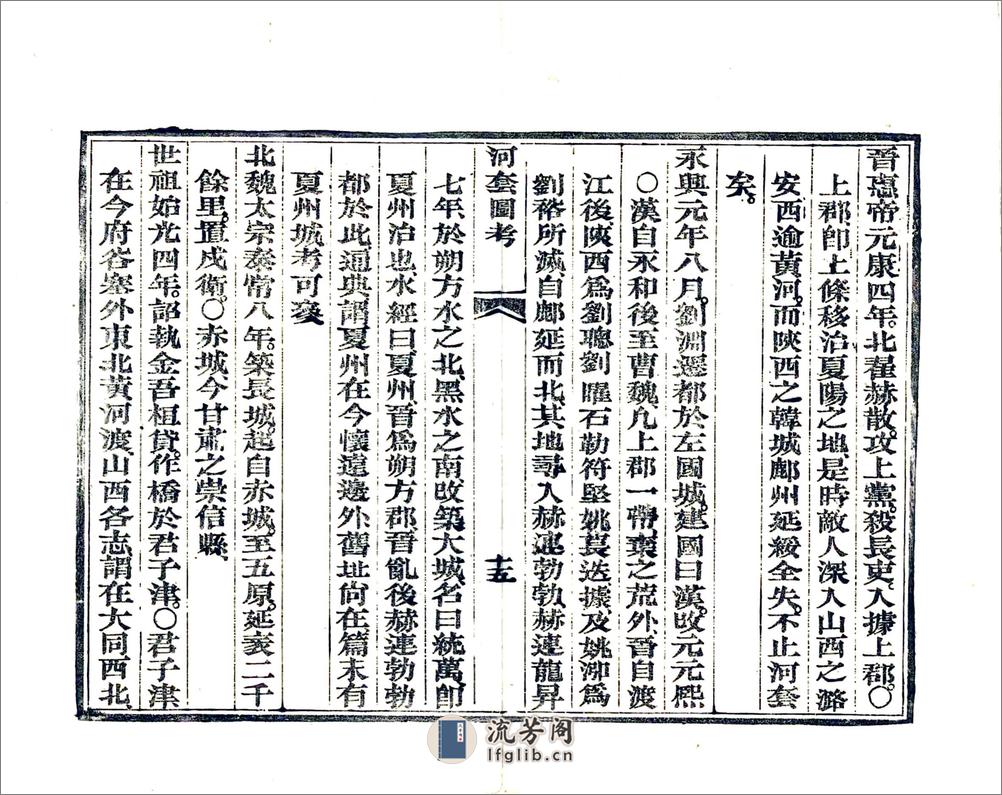 晉惠帝元康四年。北翟赫散攻上黨。殺長吏入據上郡。〇
上郡卽上條移治夏陽之地是時敵人深入山西之潞
安西逾黃河。而陝西之韓城鄜州延綏全失。不止河套
矣。
永興元年八月。劉淵遷都於左國城。建國曰漢。改元元熙
〇漢自永和後至曹魏凡上郡一帶棄之荒外晉自渡
江後陝西爲劉聰劉曜石勒符堅姚萇迭據及姚泖爲
劉裕所滅自鄜延而北其地尋入赫連勃勃赫連龍昇
河套圖考
十五
七年。於朔方水之北黑水之南改築大城。名曰統萬。卽
夏州治也水經曰夏州。晉爲朔方郡晉亂後赫連勃勃
都於此通典謂夏州在今懷遠邊外舊址尙在篇末有
夏州城考可叅
北魏太宗泰常八年。築長城。起自赤城。至五原。延袤二千
餘里。置戍衛。〇赤城今甘肅之崇信縣
世祖始光四年。詔執金吾桓貸作橋於君子津。〇君子津
在今府谷塞外東北黃河渡山西各志謂在大同西北
流芳阁
lfglib.cn